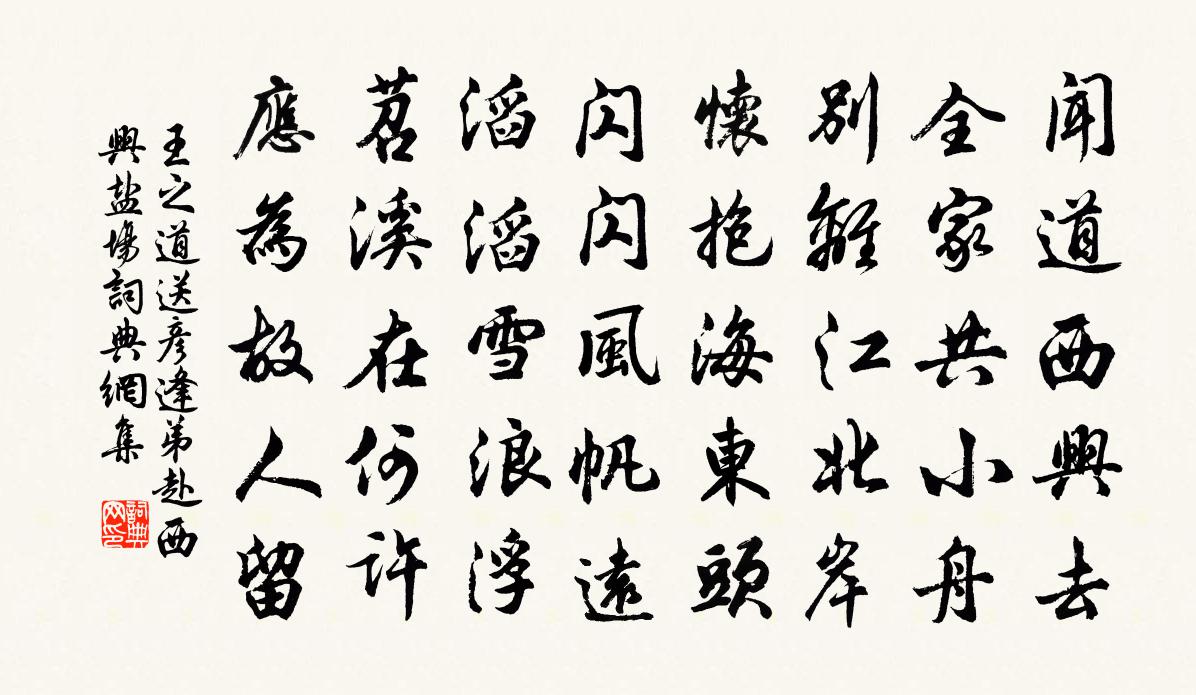 聞道西興去
全家共小舟
別離江北岸
懷抱海東頭
閃閃風帆遠
滔滔雪浪浮
苕溪在何許
應為故人留
王之道送彥逢弟赴西
興盐場詞典網集
詞典
网印